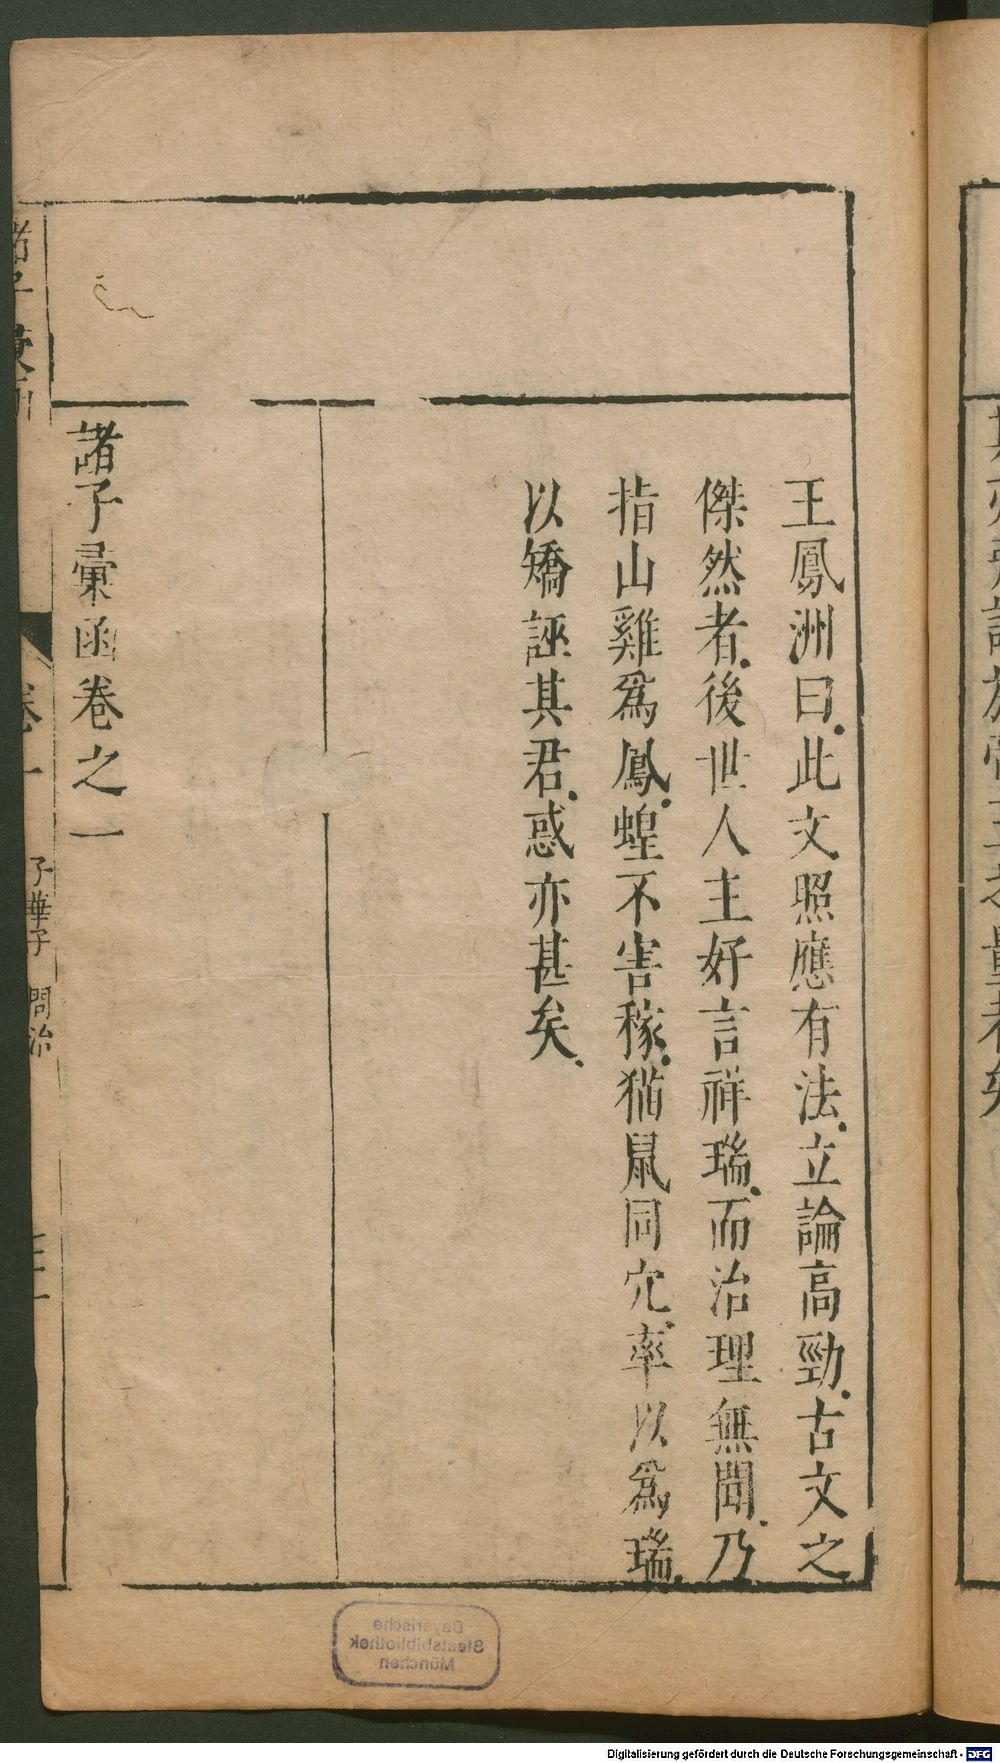 王鳳洲曰此文照應有法立論高勁古文之
傑然者後世人主好言祥瑞而治理無聞乃
指山雞爲鳳蝗不害稼猫鼠同穴率以爲瑞
以矯誣其君惑亦甚矣
諸子彙函卷之一
諸子彙函 卷一 子華子 問治
Bayerische
Staatsbibliothek
München
Digitalisierung gefördert durch die Deutsche Forschungsgemeinschaft - DFG